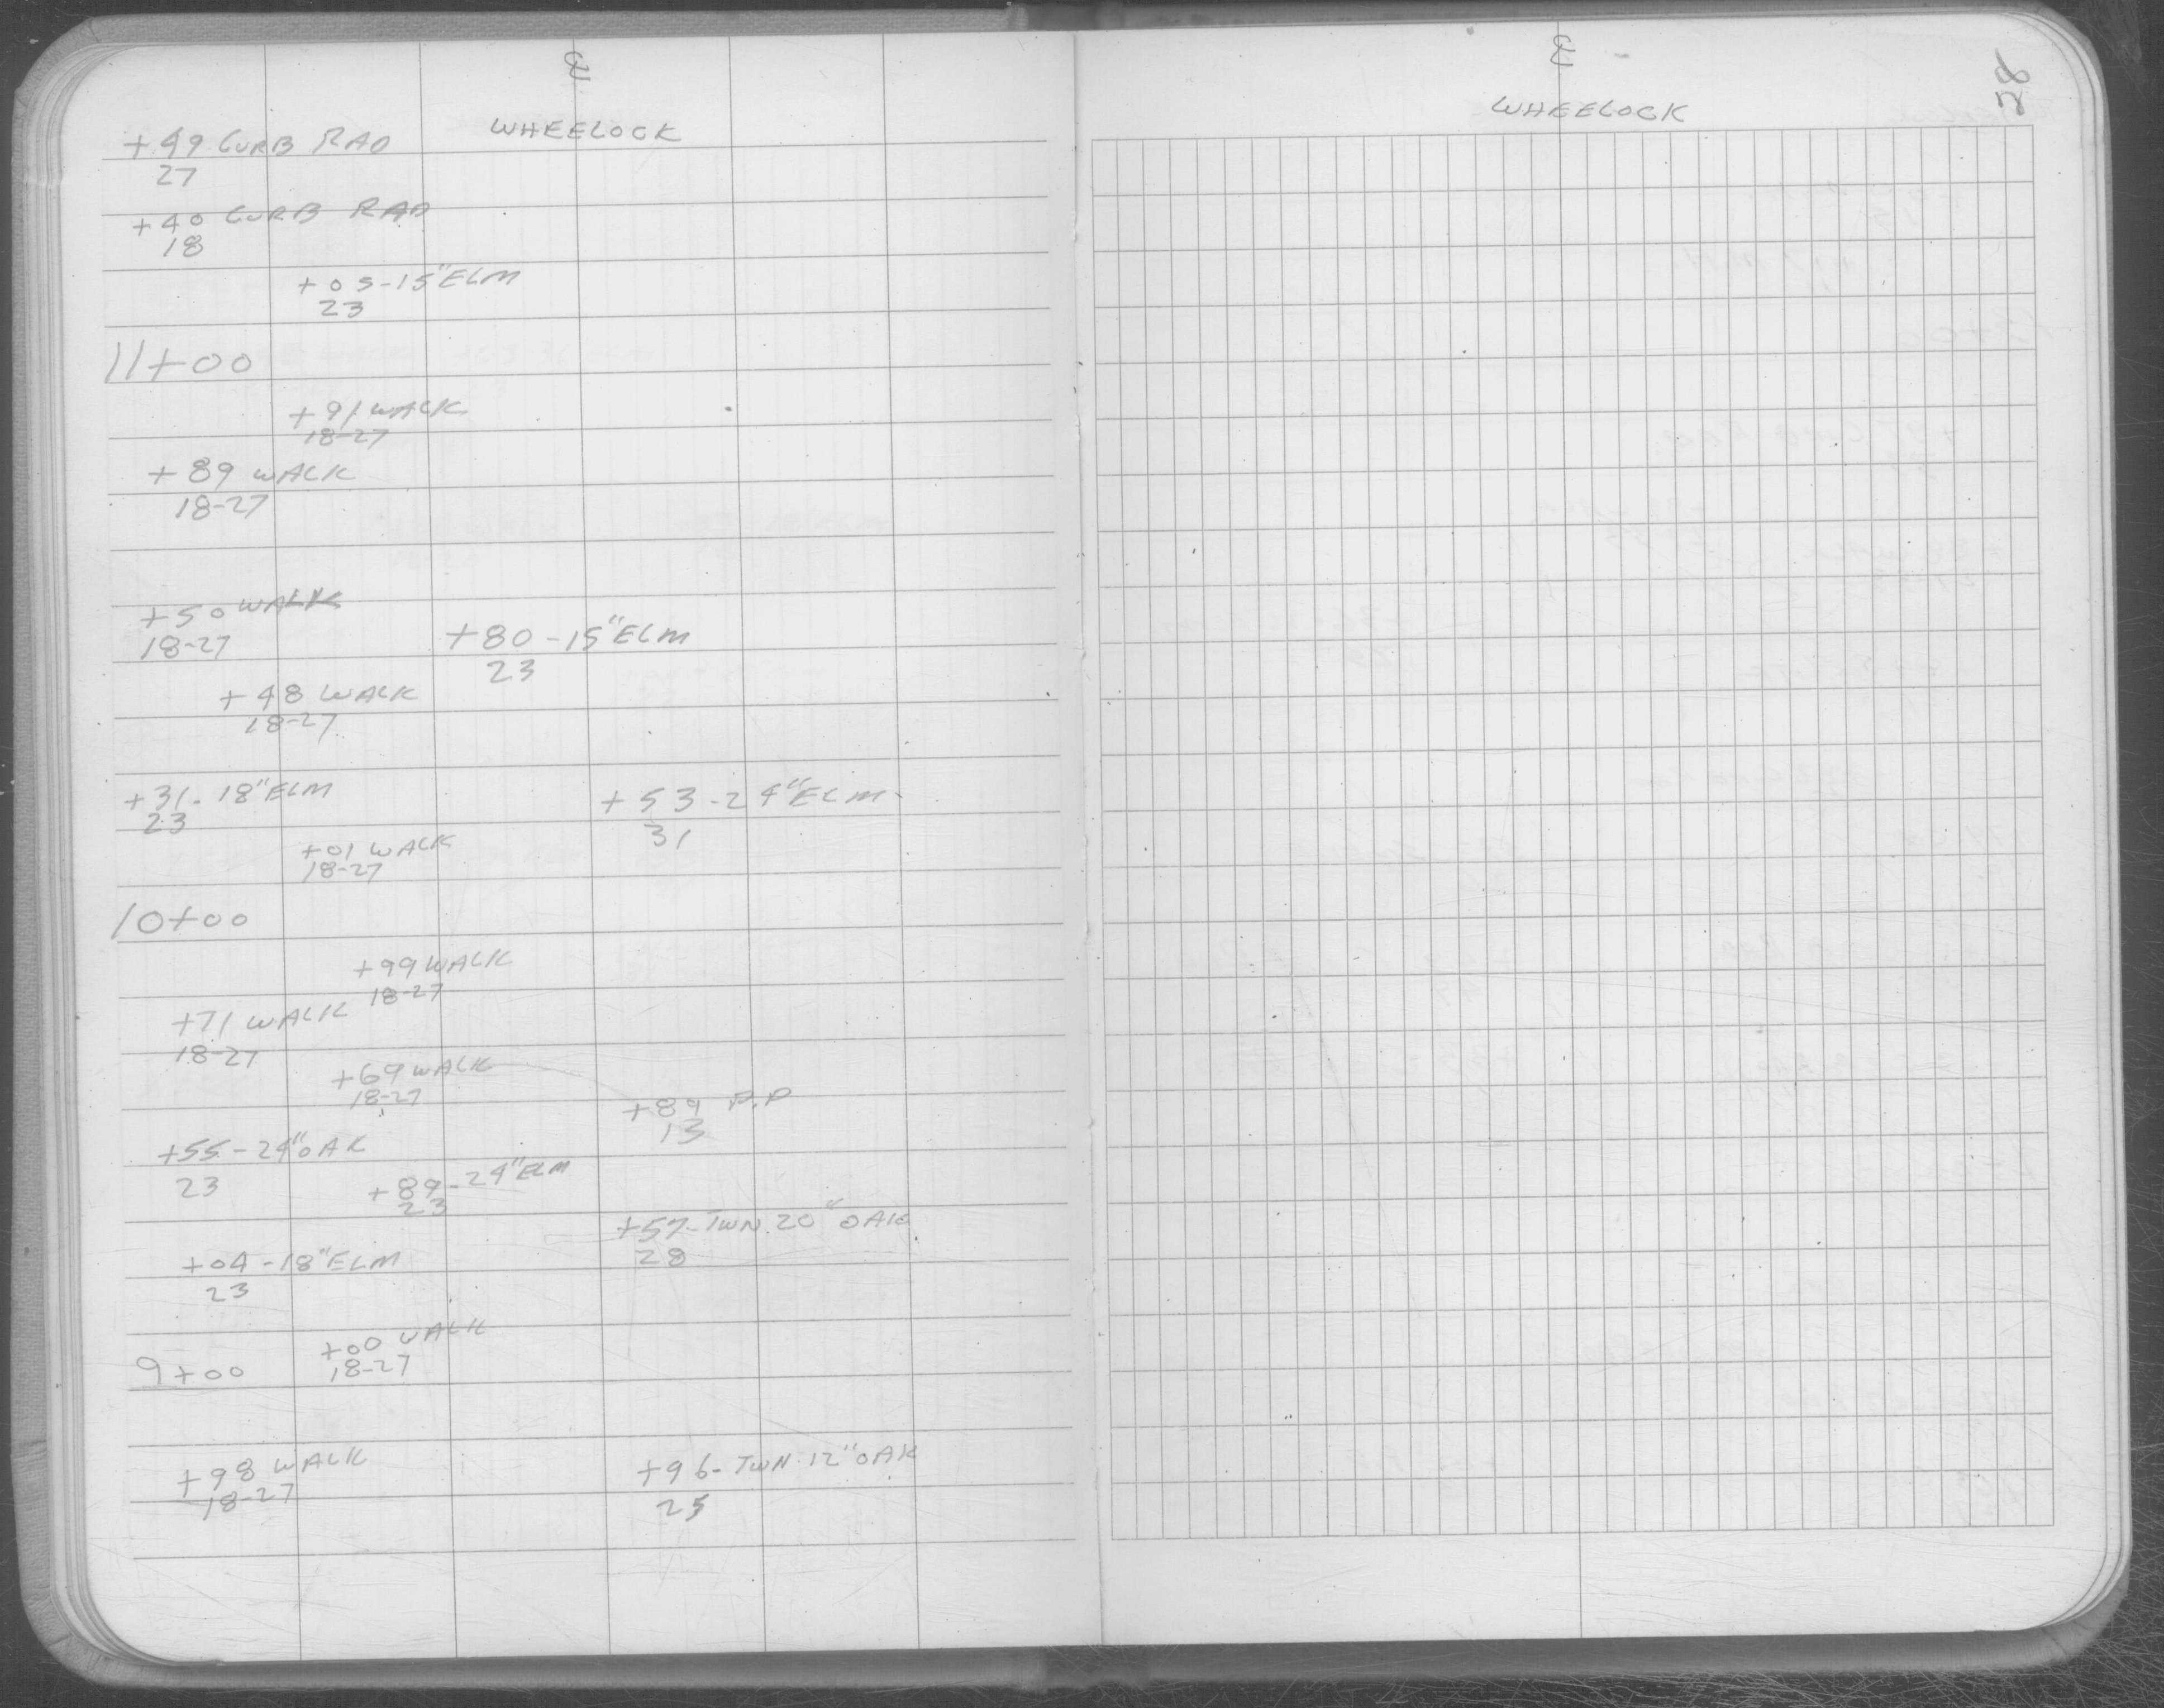 ℄
WHEELOCK
+49 CURB RAD
27
+40 CURB RAD
18
+05-15"ELM
23
11+00
+91 WALK
18-27
+89 WALK
18-27
+50 WALK
18-27
+80-15"ELM
23
+48 WALK
18-27
+31-18"ELM
23
+53-24"ELM
31
+01 WALK
18-27
10+00
+99 WALK
18-27
+71 WALK
18-27
+69 WALK
18-27
+89 P.P
13
+55-24"OAK
23
+89-24"ELM
23
+57-TWN 20"OAK
28
+04-18"ELM
23
+00 WALK
18-27
9+00
+98 WALK
18-27
+96-TWN 12"OAK
25
℄
WHEELOCK
28